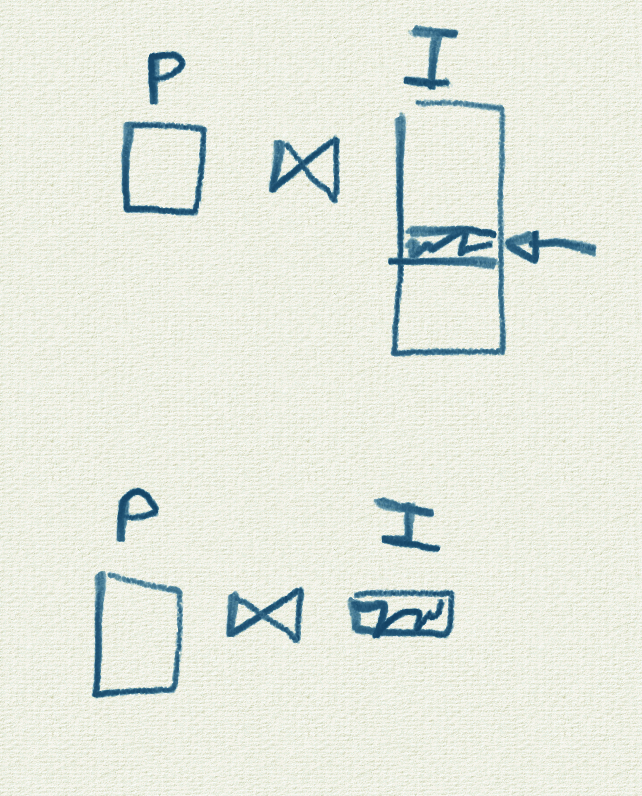 P ⋈ I
P ⋈ I